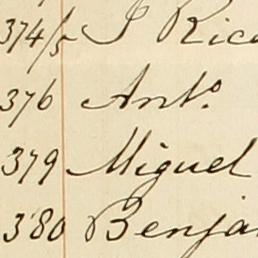 374/5 J Rica
376 Anto.
379 Miguel
380 Benja